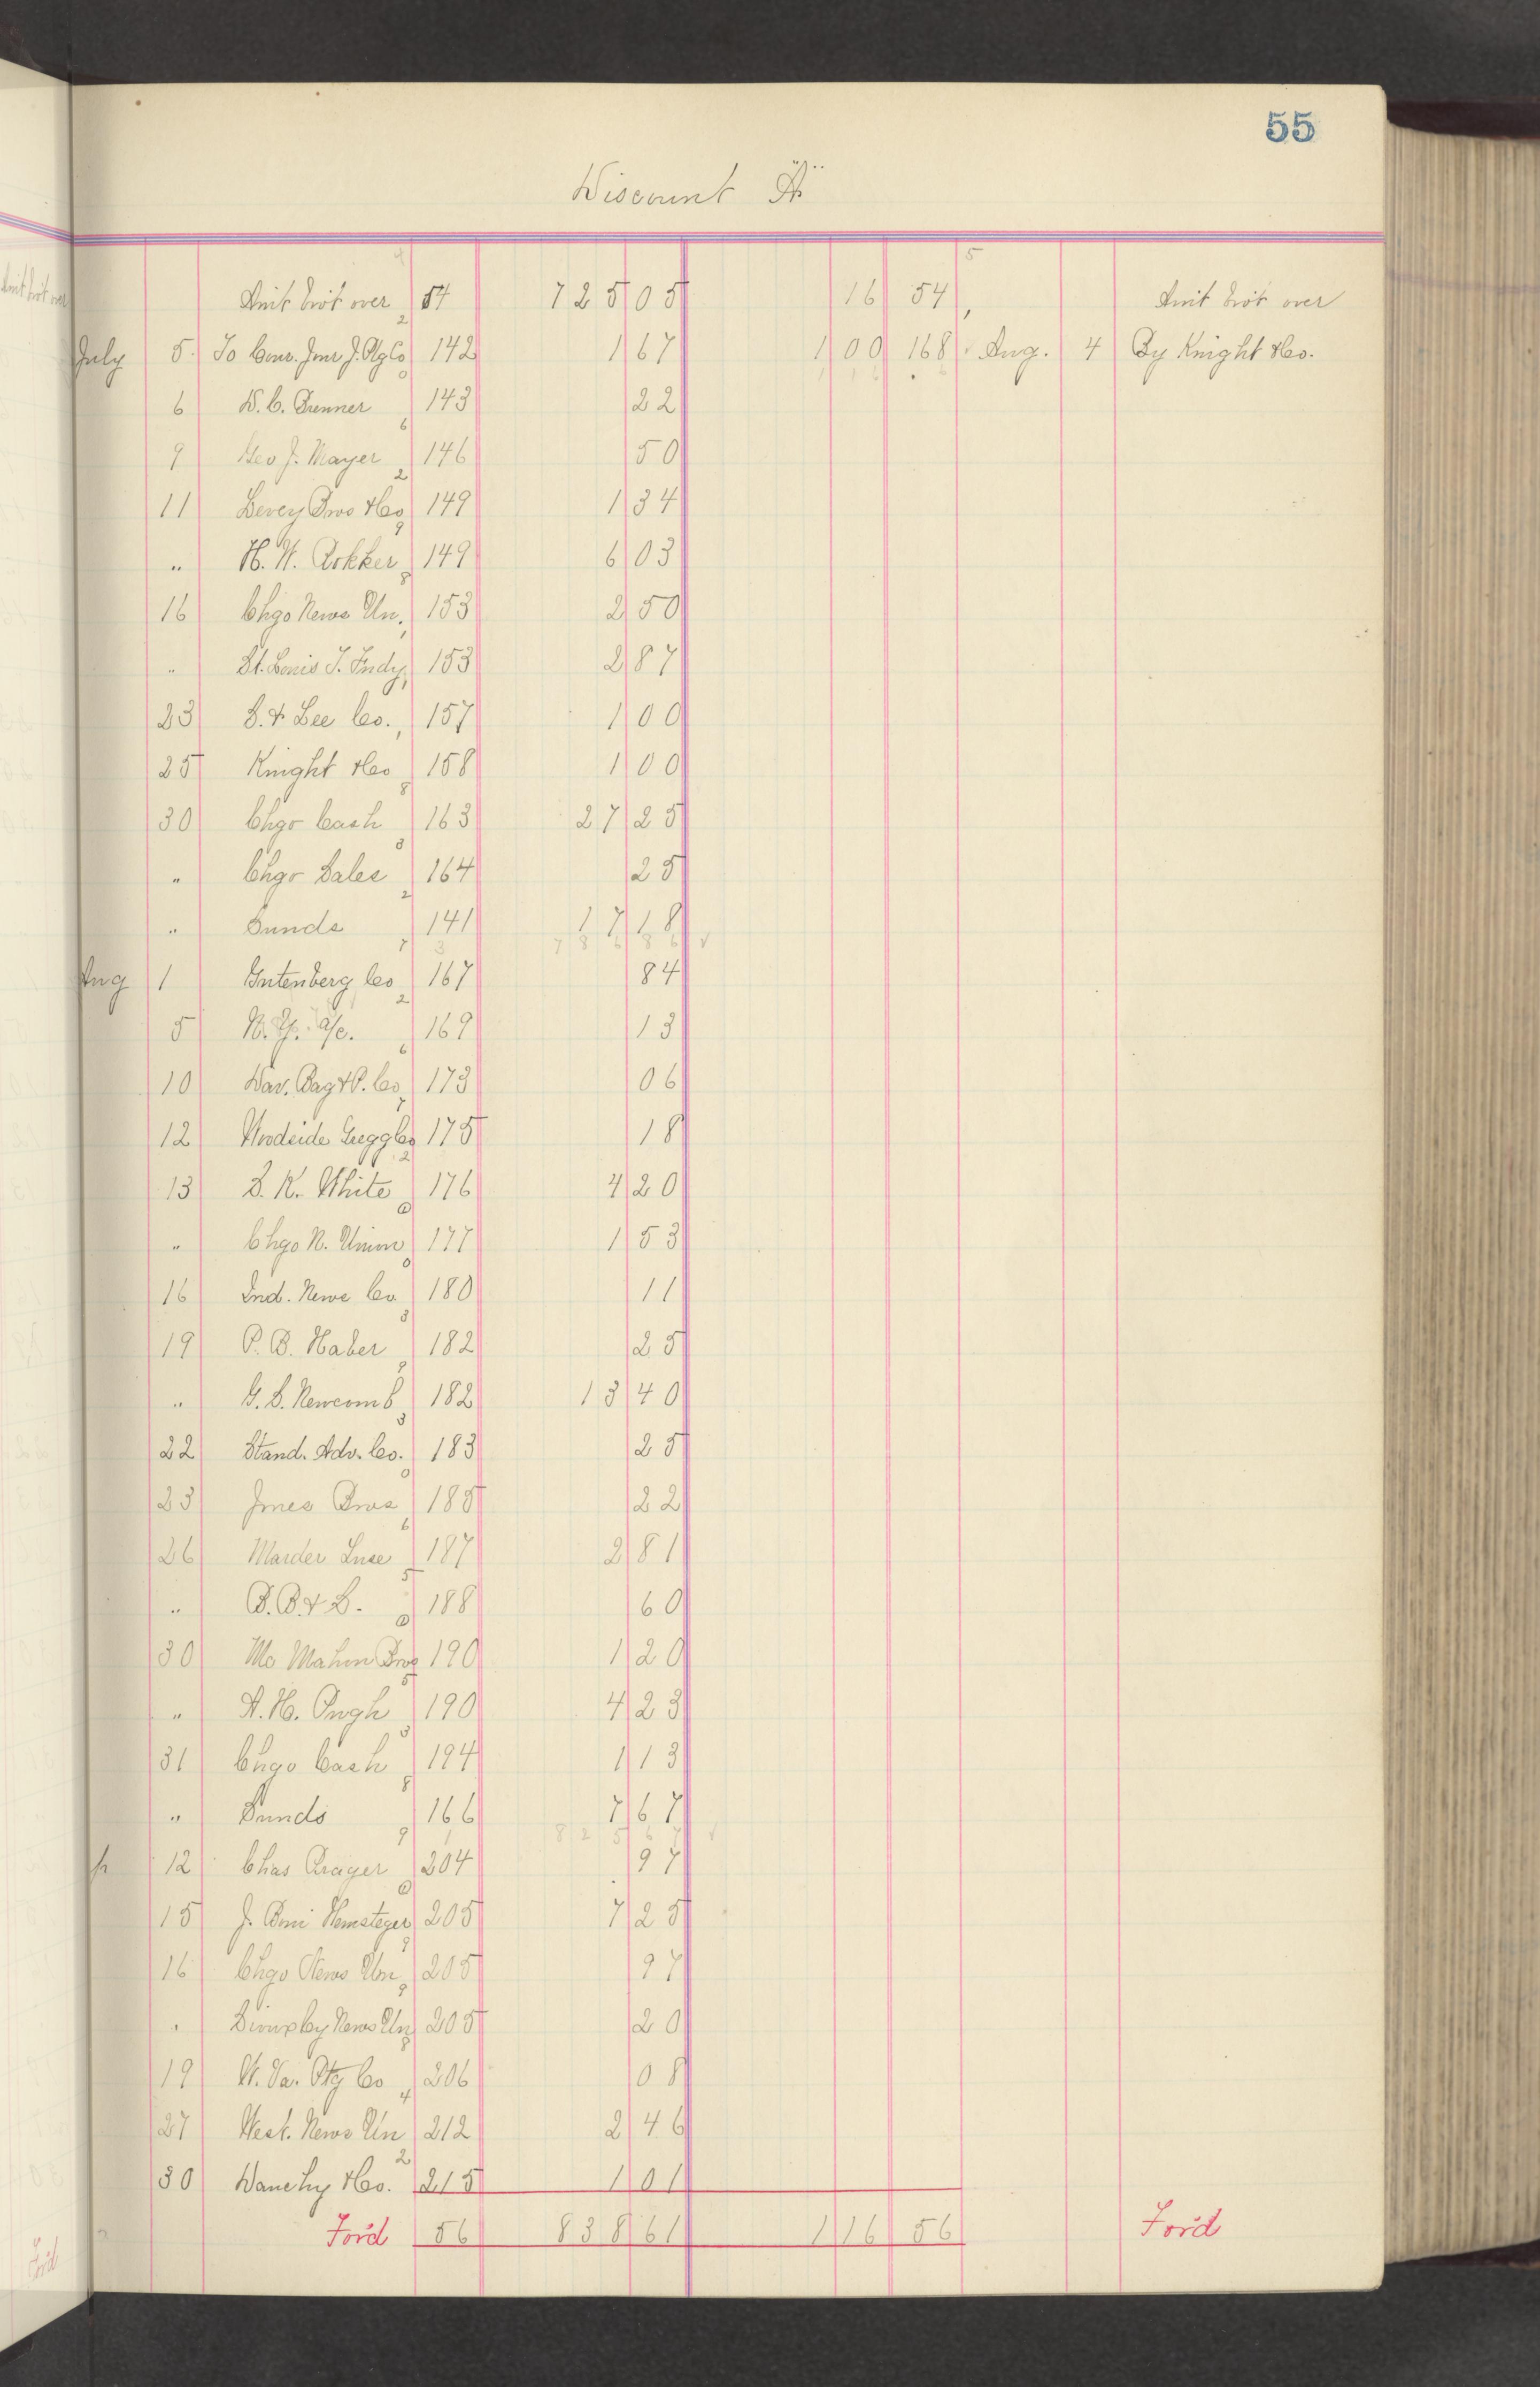 55
Discount
Amt brot over 54 725 05 16 54 Amt brot over
July 5 To Cons. Jour. J. Mfg Co 142 1 67 1 00 168 Aug. 4 By Knight & Co.
6 D. C. Brenner 143 22
9 Geo J. Mayer 146 50
11 Levey Bros & Co 149 1 34
" H. W. 149 6 03
16 Chgo News Un. 153 2 50
" St. Louis T. Fndy 153 2 87
23 S. & Lee Co. 157 1 00
25 Knight & Co 158 1 00
30 Chgo Cash 163 27 25
" Chgo Sales 164 25
" Sunds 141 17 18
7 8 6 8 6
Aug 1 Gutenberg Co 167 84
5 N. Y. a/c. 169 13
10 Dav. Bag & P. Co 173 06
12 Woodside Gregg Co 175 18
13 S. K. White 176 4 20
" Chgo N. Union 177 1 53
16 Ind. News Co 180 11
19 P. B. Haber 182 25
" G. S. Newcomb 182 13 40
22 Stand. Adv. Co. 183 25
23 Jones Bros 185 22
26 Marder Luse 187 2 81
" B. B. & S. 188 60
30 Mc Mahon Bros 190 1 20
" A. H. Pugh 190 4 23
31 Chgo Cash 194 1 13
" Sunds 166 7 67
8 2 5 6 7
12 Chas Prager 204 97
15 J. 205 7 25
16 Chgo News Un 205 97
" News Un 205 20
19 W. Va. Ptg Co 206 08
27 West. News Un 212 2 46
30 & Co. 215 1 01
For'd 56 838 61 1 16 56 For'd